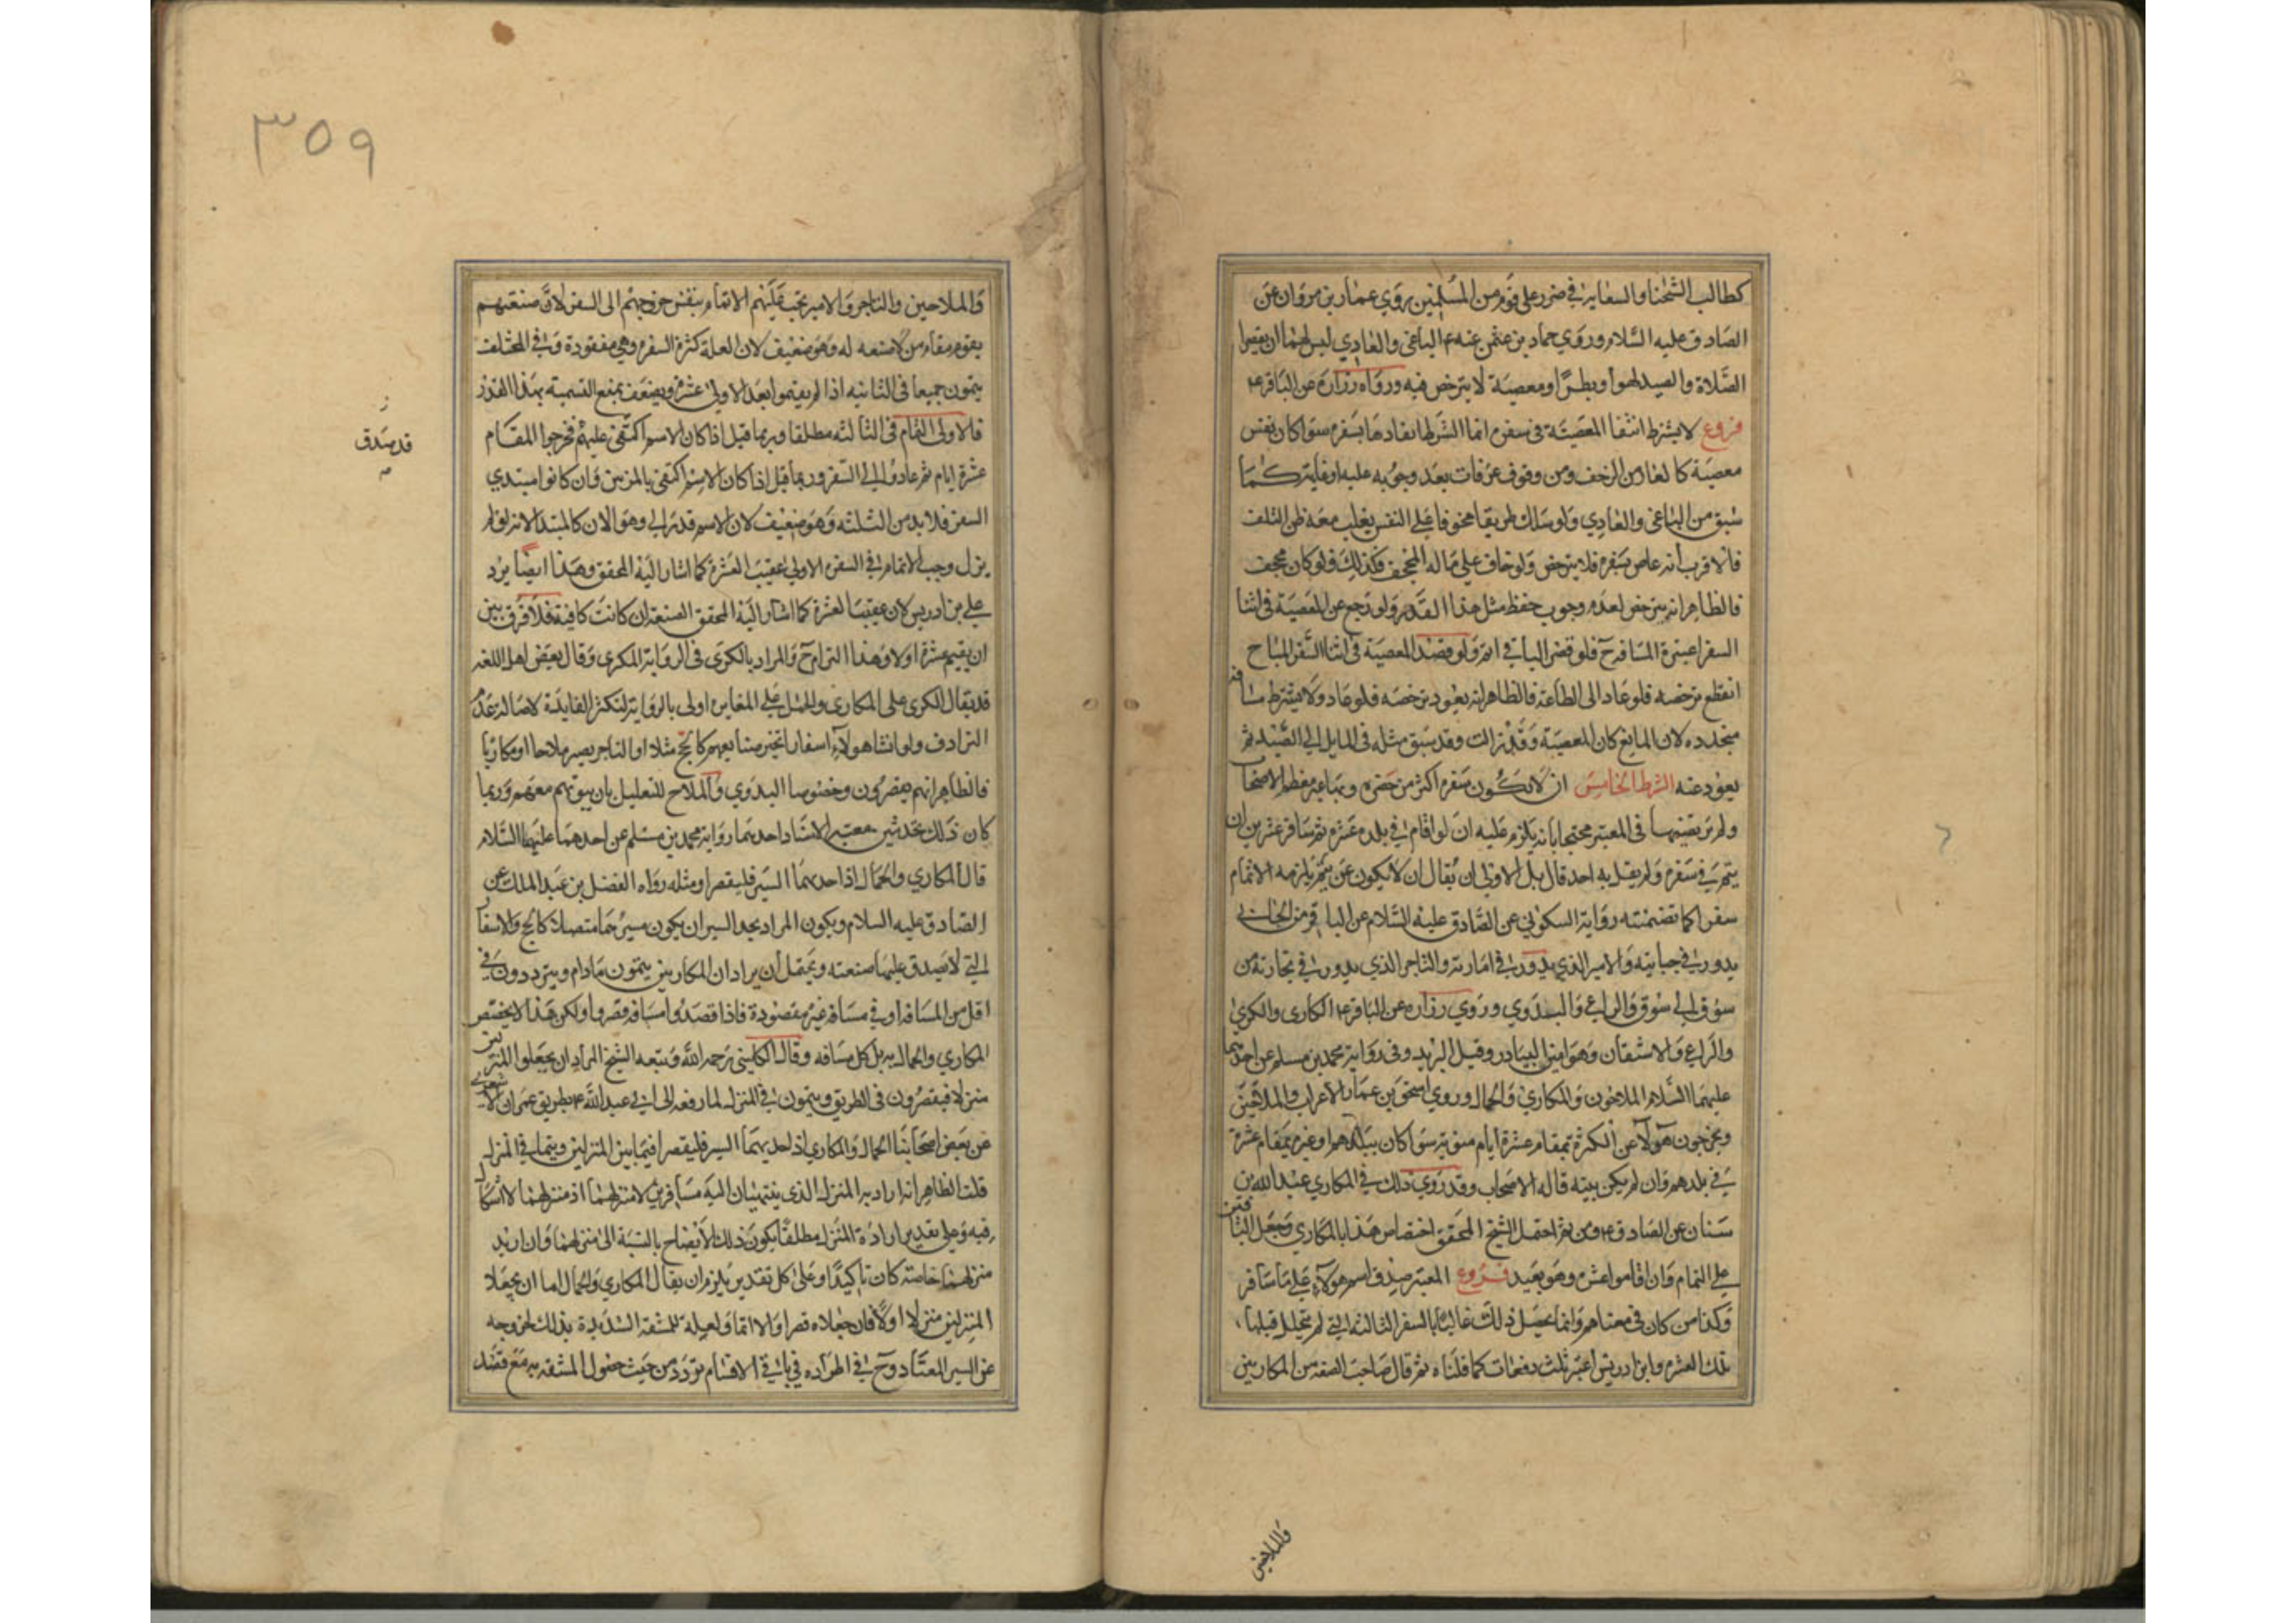 كطالب الشحنا والسعاية في ضرر على قوم من المسلمين روى عمار بن مروان عن
الصادق عليه السلام وروى حماد بن عثمن عنه ع الباغي والعادي ليس لهما ان يقصرا
الصلاة والصيد لهوا وبطرا ومعصية لا يترخص فيه ورواه زرارة عن الباقر ع
فروع لا يشترط انتفا المعصية في سفره انما الشرط انفادها بسفره سوا كان نفس
معصية كالفار من الزحف ومن وقوف عرفات بعد وجوبه عليه او غايته كما
سبق من الباغي والعادي ولو سلك طريقا مخوفا على النفس يغلب معه ظن التلف
فالاقرب أنه عاص بسفره فلا يترخص ولو خاف على ماله المجحف فكذلك ولو كان مجحف
فالظاهر انه يترخص لعدم وجوب حفظ مثل هذا القدر ولو رجع عن المعصية في اثنا
السفر اعتبرة المسافة ح فلو قصر الباقي اتم ولو قصد المعصية في اثنا السفر المباح
انقطع ترخصه فلو عاد الى الطاعة فالظاهر انه يعود ترخصه فلو عاد ولا يشترط مسافة
متجدده لان المانع كان المعصية وقد زالت وقد سبق مثله في المايل الى الصيد ثم
يعود عنه الشرط الخامس ان لا يكون سفره اكثر من حضره وبها عبر معظم الاصحاب
ولم يرتضيها في المعتبر محتجا بانه يلزم عليه ان لو اقام في بلده عشرة ثم سافر عشرين ان
يتم في سفره ولم يقل به احد قال بل الاولى ان يقال ان لا يكون عن يتم يلزمه الاتمام
سفرا كما تضمنته رواية السكوني عن الصادق عليه السلام عن الباقر من الجابي
يدور في جبايته والامير الذي يدور في امارته والتاجر الذي يدور في تجارته من
سوق الى سوق والراعي والبدوي وروى زراره عن الباقر ع المكارى والكرى
والراعي والاشتقان وهو امين البيادر وقيل البريد وفي رواية محمد بن مسلم عن احدهما
عليهما السلام الملاحون والمكاري والجمال وروى اسحق بن عمار الاعراب والملاحين
ويخرجون هولا عن الكثرة بمقام عشرة ايام منوية سوا كان ببلدهم او غيره بمقام عشرة
في بلدهم وان لم يكن بنيته قاله الاصحاب وقد روى ذلك في المكاري عبد الله بن
سنان عن الصادق ع ومن ثم احتمل الشيخ المحقق اختصاص هذا بالمكاري وجعل الباقين
على التمام وان اقاموا عشره وهو بعيد فروع المعتبر صدق اسم هولاء على ما سافر
وكذا من كان في معناهم وانما يحصل ذلك غالبا بالسفر الثالثه التي لم يتخلل قبلها
تلك العشره وابن ادريس اعتبر ثلث دفعات كما قلناه ثم قال صاحب الصنعه من المكارين
والملاحين
٣٥٩
والملاحين والتاجر والامير تجب عليهم الاتمام بنفس خروجهم الى السفر لان صنعتهم
يقوم مقام من لا صنعه له وهو ضعيف لان العلة كثرة السفر وهي مفقودة وفي المختلف
يتمون جميعا في الثانيه اذا لم يقيموا بعد الاولى عشرة ويضعف بمنع التسمية بهذا القدر
فالاولى التمام في الثالثه مطلقا وربما قيل اذا كان الاسم اكتفي عليهم فخرجوا المقام
عشرة ايام ثم عادوا الى السفر وربما قيل اذا كان الاسم اكتفى بالمرتين وان كانوا مبتدي
السفر فلا بد من الثلثه وهو ضعيف لان الاسم قد زال وهو الان كالمبتدا لانه لو لم
يزل وجب الاتمام في السفره الاولى عقيب العشرة كما اشار اليه المحقق وهذا ايضا يرد
على بن ادريس لان عقيب العشرة كما اشار اليه المحقق الصنعة ان كانت كافية فلا فرق بين
ان يقيم عشرة اولا وهذا الزام ح والمراد بالكرى في الرواية المكرى وقال بعض اهل اللغه
قد يقال الكرى على المكارى والحمل على المغاير اولى بالرواية لتكثر الفايدة لاصالة عدم
الترادف ولو انشا هولاء اسفارا غير صنايعهم كالحج مثلا او التاجر يصير ملاحا او مكاريا
فالظاهر انهم يقصرون وخصوصا البدوي والملاح للتعليل بان بيوتهم معهم وربما
كان ذلك بحديثين معتبر الاسناد احدهما رواية محمد بن مسلم عن احدهما عليهما السلام
قال المكاري والجمال اذا جد بهما السير فليقصرا ومثله رواه الفضل بن عبد الملك عن
الصادق عليه السلام ويكون المراد بجد السير ان يكون مسيرهما متصلا كالحج والاسفار
التي لا يصدق عليها صنعته ويحتمل أن يراد ان المكارين يتمون مادام ويترددون في
اقل من المسافة او في مسافة غير مقصودة فاذا قصدوا مسافة قصروا ولكن هذا لا يختص
المكاري والجمال به بل كل مسافر وقال الكليني رحمه الله وتبعه الشيخ المراد ان يجعلوا المنزلين
منزلا فيقصرون في الطريق ويتمون في المنزل لما رفعه الى ابي عبد الله ع بطريق عمران الاشعري
عن بعض اصحابنا الجمال والمكاري اذا جد بهما السير فليقصرا فيما بين المنزلين ويتما في المنزل
قلت الظاهر انه اراد به المنزل الذي ينتهيان اليه مسافرين لا منزلهما اذ منزلهما لا اشكال
فيه وعلى تقدير ارادة المنزل مطلقا يكون ذلك لايضاح بالنسبة الى منزلهما وان اريد
منزلهما خاصة كان تاكيدا وعلى كل تقدير يلزم ان يقال المكاري والجمال اما ان يجعلا
المنزلين منزلا اولا فان جعلاه قصرا والا اتما ولعله للمشقه الشديدة بذلك لخروجه
عن السير المعتاد وح في اطراده في باقي الاقسام تردد من حيث حصول المشقه به مع قصد
قد صدق